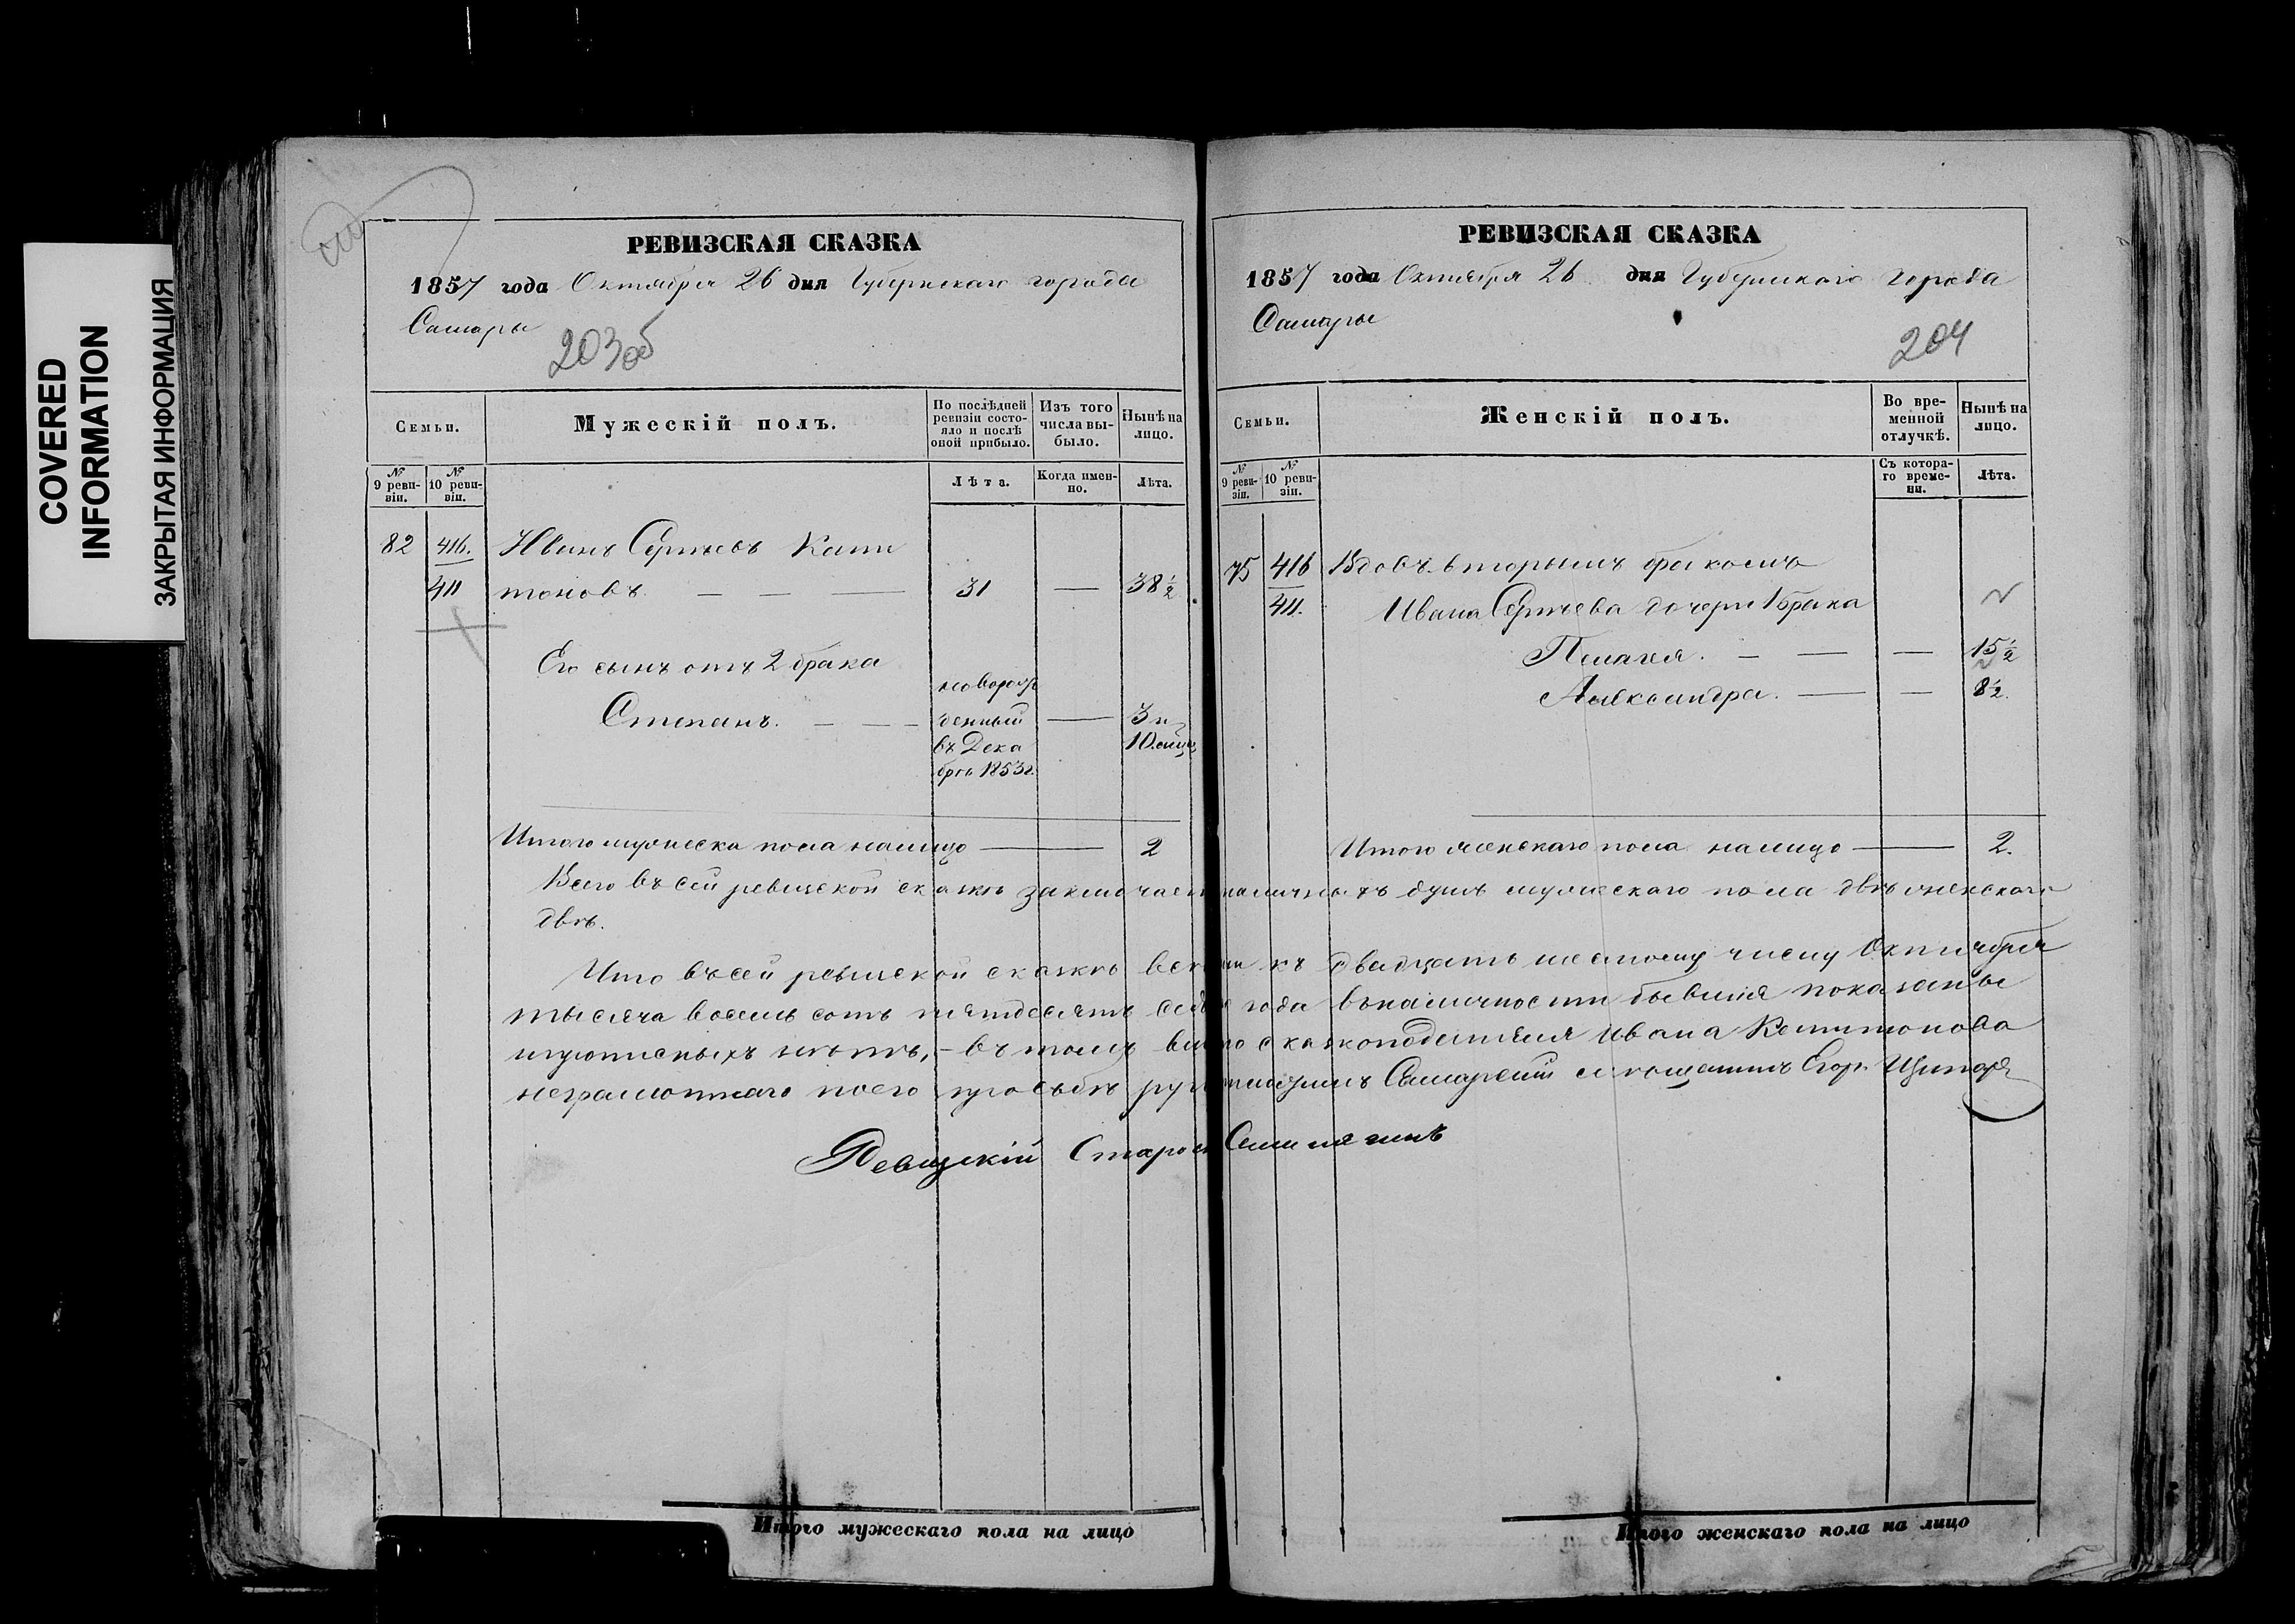 COVERED
INFORMATION
ЗАКРЫТАЯ ИНФОРМАЦИЯ
РЕВИЗСКАЯ СКАЗКА
1857 года Октября 26 дня Губернскаго города
Самары
203об
Семьи.
Мужескій полъ.
По послѣдней ревизіи состояло и послѣ оной прибыло.
Изъ того числа выбыло.
Нынѣ на лицо.
№ 9 ревизіи.
№ 10 ревизіи.
Лѣта.
Когда именно.
Лѣта.
82 416. Иванъ Сергѣевъ Капи
411 тоновъ. — — — 31 — 38½
Его сынъ отъ 2 брака
новорож
Степанъ. — — денный — 3 и
въ Дека 10 мѣц
брѣ 1853г.
Итого мужеска пола налицо — 2
РЕВИЗСКАЯ СКАЗКА
1857 года Октября 26 дня Губернскаго города
Самары
204
Семьи.
Женскій полъ.
Во временной отлучкѣ.
Нынѣ на лицо.
№ 9 ревизіи.
№ 10 ревизіи.
Съ котораго времени.
Лѣта.
75 416 Вдовъ вторымъ бракомъ
411. Ивана Сергѣева дочери 1 брака
Пелагея. — — — 15½
Александра. — — 8½.
Итого женскаго пола налицо — 2.
Всего въ сей ревизской сказкѣ заключает наличныхъ душъ мужескаго пола двѣ женскаго
двѣ.
Что въ сей ревизской сказкѣ всѣ къ двадцать шестому числу Октября
тысяча восемь сотъ пятдесятъ седь года въ наличности бывшія показаны
и прописныхъ нѣтъ, – въ томъ вмѣсто сказкоподателя Ивана Капитонова
неграмотнаго поего просьбѣ Самарскій мѣщанинъ Егор
Ревизскій Старос
Итого мужескаго пола на лицо
Итого женскаго пола на лицо